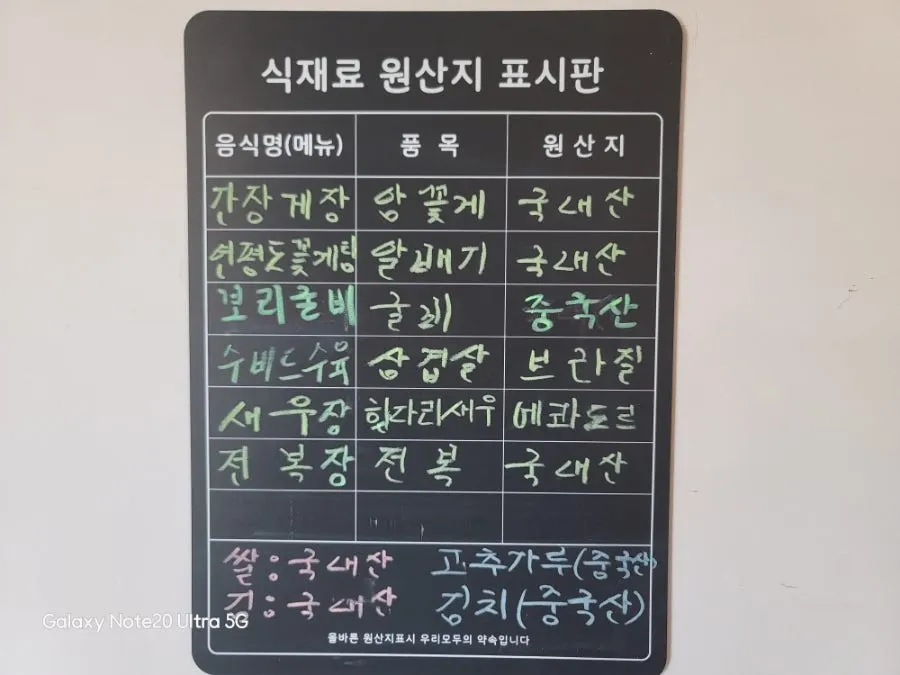 식재료 원산지 표시판
음식명(메뉴) 품 목 원 산 지
간장게장 암꽃게 국내산
연평도꽃게탕 알배기 국내산
보리굴비 굴비 중국산
수비드수육 삼겹살 브라질
새우장 흰다리새우 에콰도르
전복장 전복 국내산
쌀:국내산 고추가루(중국산)
김:국내산 김치(중국산)
올바른 원산지표시 우리모두의 약속입니다
Galaxy Note20 Ultra 5G